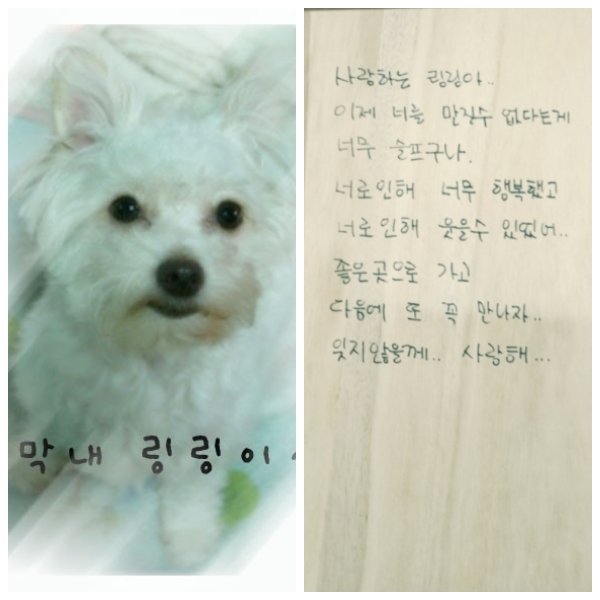 막내 링링이
사랑하는 링링아..
이제 너를 만질수 없다는게
너무 슬프구나.
너로인해 너무 행복했고
너로인해 웃을수 있었어..
좋은곳으로 가고
다음에 또 꼭 만나자..
잊지않을께.. 사랑해...